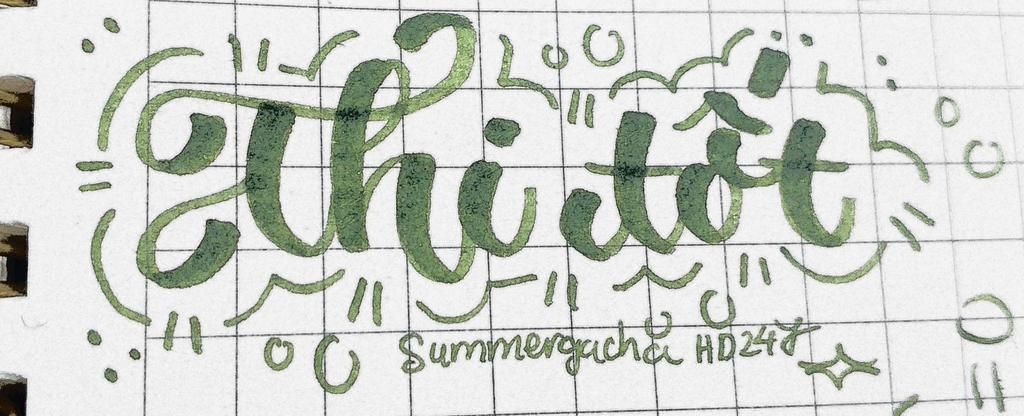 Thi tốt
Summergacha HD247